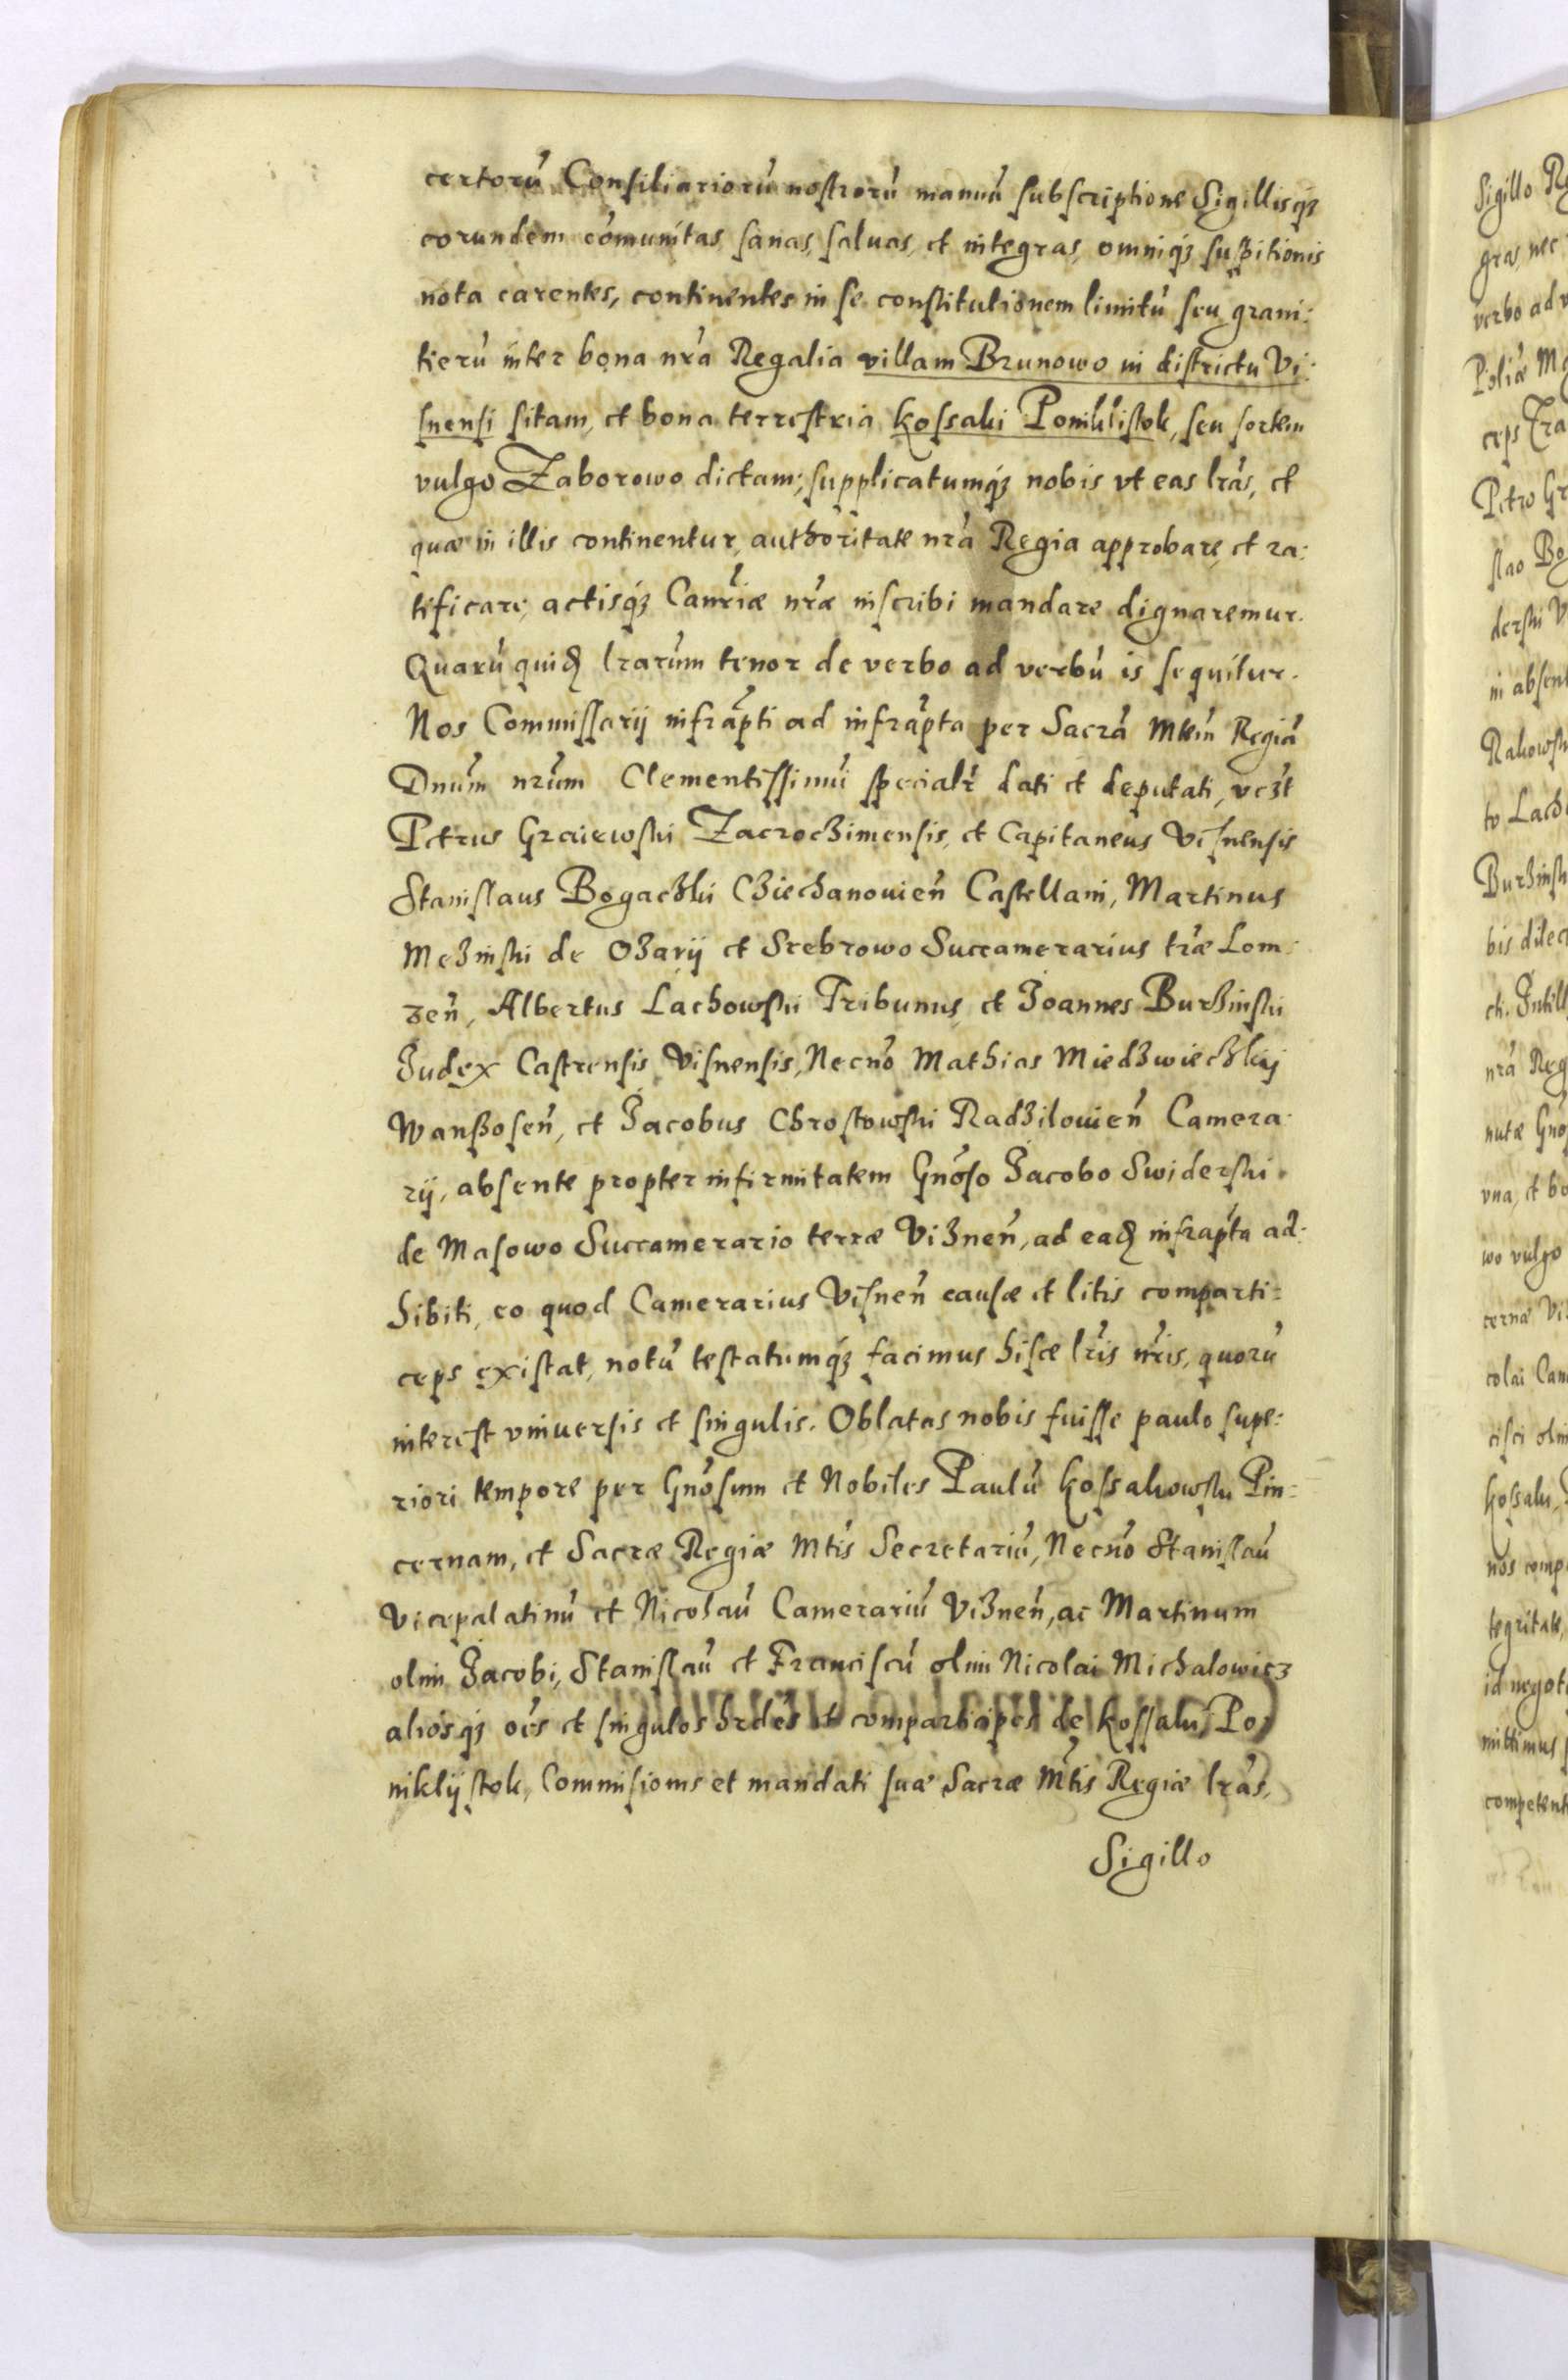 certorū Consiliariorū nostrorū manuū subscriptione Sigillisq́
eorundem cōmunitas, sanas, saluas, et integras, omniq́ suspitionis
nota carentes, continentes in se constitutionem limitū seu grani:
tierū inter bona nr̄a Regalia villam Brunowo in districtu Vi:
snensi sitam, et bona terrestria kossaki Poniklistok, seu sortem
vulgo Zaborowo dictam; supplicatumq́ nobis vt eas lrās, et
quæ in illis continentur, authoritate nrā Regia approbare, et ra:
tificare, actisq́ Canrīæ nrǣ inscribi mandare dignaremur.
Quarū quid lrarūm tenor de verbo ad verbū is sequitur.
Nos Commissarij infrāpti ad infrāpta per Sacrā Mtēm Regiā
Dnūm nrūm Clementissimū specialr̄ dati et deputati, vczt
Petrus Graiewski Zacroczimensis, et Capitaneus Visnensis
Stanislaus Bogaczki Cziechanouien̄ Castellani, Martinus
Mezinski de Ozarij et Srebrowo Succamerarius trǣ Lom:
zen̄, Albertus Lachowski Tribunus, et Joannes Burzinski
Judex Castrensis Visnensis, Necnō Mathias Miedzwieczkij
Wanßosen̄, et Jacobus Chrostowski Radzilouien̄ Camera:
rij, absente propter infirmitatem Gnōso Jacobo Swiderski
de Masowo Succamerario terræ Viznen̄, ad ead infrapta ad:
hibiti, eo quod Camerarius Visnen̄ causæ et litis comparti:
ceps existat, notū testatumq́ facimus hisce lrīs nrīs, quorū
interest vniuersis et singulis. Oblatas nobis fuisse paulo supe:
riori tempore per Gnōsum et Nobiles Paulū kossakowski Pin:
cernam, et Sacræ Regiæ Mtīs Secretariū, Necnō Stanislaū
Vicepalatinū et Nicolaū Camerariū Viznen̄, ac Martinum
olim Jacobi, Stanislaū et Franciscū olim Nicolai Michalowicz
aliosq́ oēs et singulos hrdēs et comparticipes de kossaki, Po
niklijstok, Commisionis et mandati suæ Sacræ Mtīs Regiæ lrās,
Sigillo